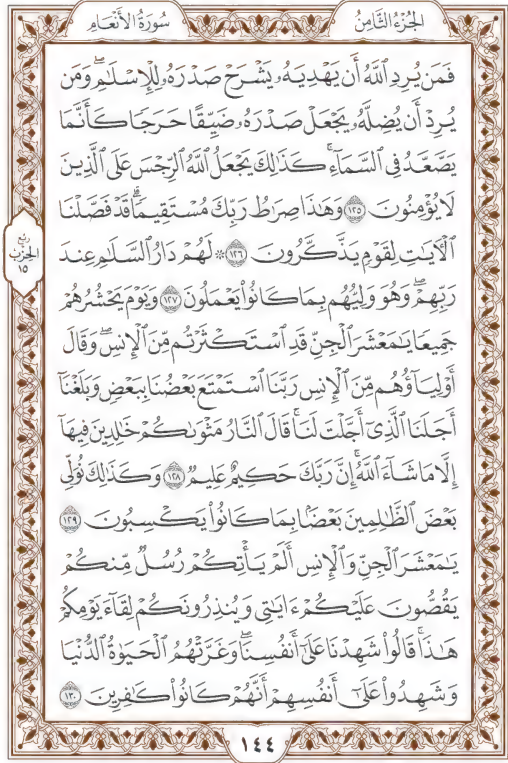 الجُزْءُ الثَّامِنُ
سُورَةُ الأَنْعَامِ
فَمَن يُرِدِ ٱللَّهُ أَن يَهْدِيَهُۥ يَشْرَحْ صَدْرَهُۥ لِلْإِسْلَٰمِۖ وَمَن
يُرِدْ أَن يُضِلَّهُۥ يَجْعَلْ صَدْرَهُۥ ضَيِّقًا حَرَجًا كَأَنَّمَا
يَصَّعَّدُ فِى ٱلسَّمَآءِۚ كَذَٰلِكَ يَجْعَلُ ٱللَّهُ ٱلرِّجْسَ عَلَى ٱلَّذِينَ
لَا يُؤْمِنُونَ ١٢٥ وَهَٰذَا صِرَٰطُ رَبِّكَ مُسْتَقِيمًاۗ قَدْ فَصَّلْنَا
ٱلْأَيَٰتِ لِقَوْمٍ يَذَّكَّرُونَ ١٢٦ ۞ لَهُمْ دَارُ ٱلسَّلَٰمِ عِندَ
رَبِّهِمْۖ وَهُوَ وَلِيُّهُم بِمَا كَانُوا۟ يَعْمَلُونَ ١٢٧ وَيَوْمَ يَحْشُرُهُمْ
جَمِيعًا يَٰمَعْشَرَ ٱلْجِنِّ قَدِ ٱسْتَكْثَرْتُم مِّنَ ٱلْإِنسِۖ وَقَالَ
أَوْلِيَآؤُهُم مِّنَ ٱلْإِنسِ رَبَّنَا ٱسْتَمْتَعَ بَعْضُنَا بِبَعْضٍ وَبَلَغْنَآ
أَجَلَنَا ٱلَّذِىٓ أَجَّلْتَ لَنَاۚ قَالَ ٱلنَّارُ مَثْوَىٰكُمْ خَٰلِدِينَ فِيهَآ
إِلَّا مَا شَآءَ ٱللَّهُۗ إِنَّ رَبَّكَ حَكِيمٌ عَلِيمٌ ١٢٨ وَكَذَٰلِكَ نُوَلِّى
بَعْضَ ٱلظَّٰلِمِينَ بَعْضًۢا بِمَا كَانُوا۟ يَكْسِبُونَ ١٢٩
يَٰمَعْشَرَ ٱلْجِنِّ وَٱلْإِنسِ أَلَمْ يَأْتِكُمْ رُسُلٌ مِّنكُمْ
يَقُصُّونَ عَلَيْكُمْ ءَايَٰتِى وَيُنذِرُونَكُمْ لِقَآءَ يَوْمِكُمْ
هَٰذَاۚ قَالُوا۟ شَهِدْنَا عَلَىٰٓ أَنفُسِنَاۖ وَغَرَّتْهُمُ ٱلْحَيَوٰةُ ٱلدُّنْيَا
وَشَهِدُوا۟ عَلَىٰٓ أَنفُسِهِمْ أَنَّهُمْ كَانُوا۟ كَٰفِرِينَ ١٣٠
رُبع
الحِزْب
١٥
١٤٤